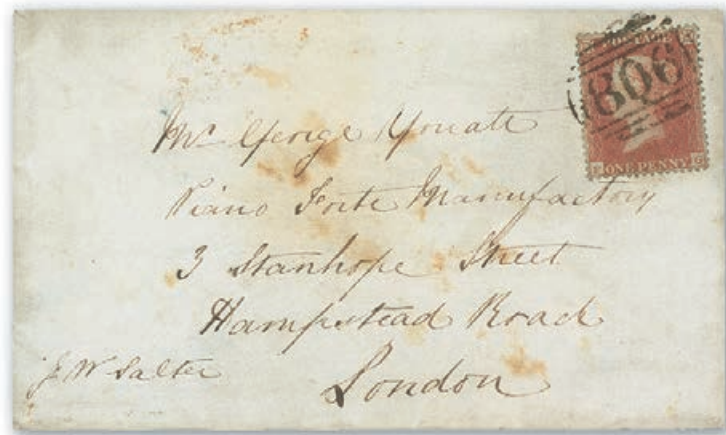 806
ONE PENNY
Mr George Youatt
Piano Forte Manufactory
3 Stanhope Street
Hampstead Road
J W Salter
London